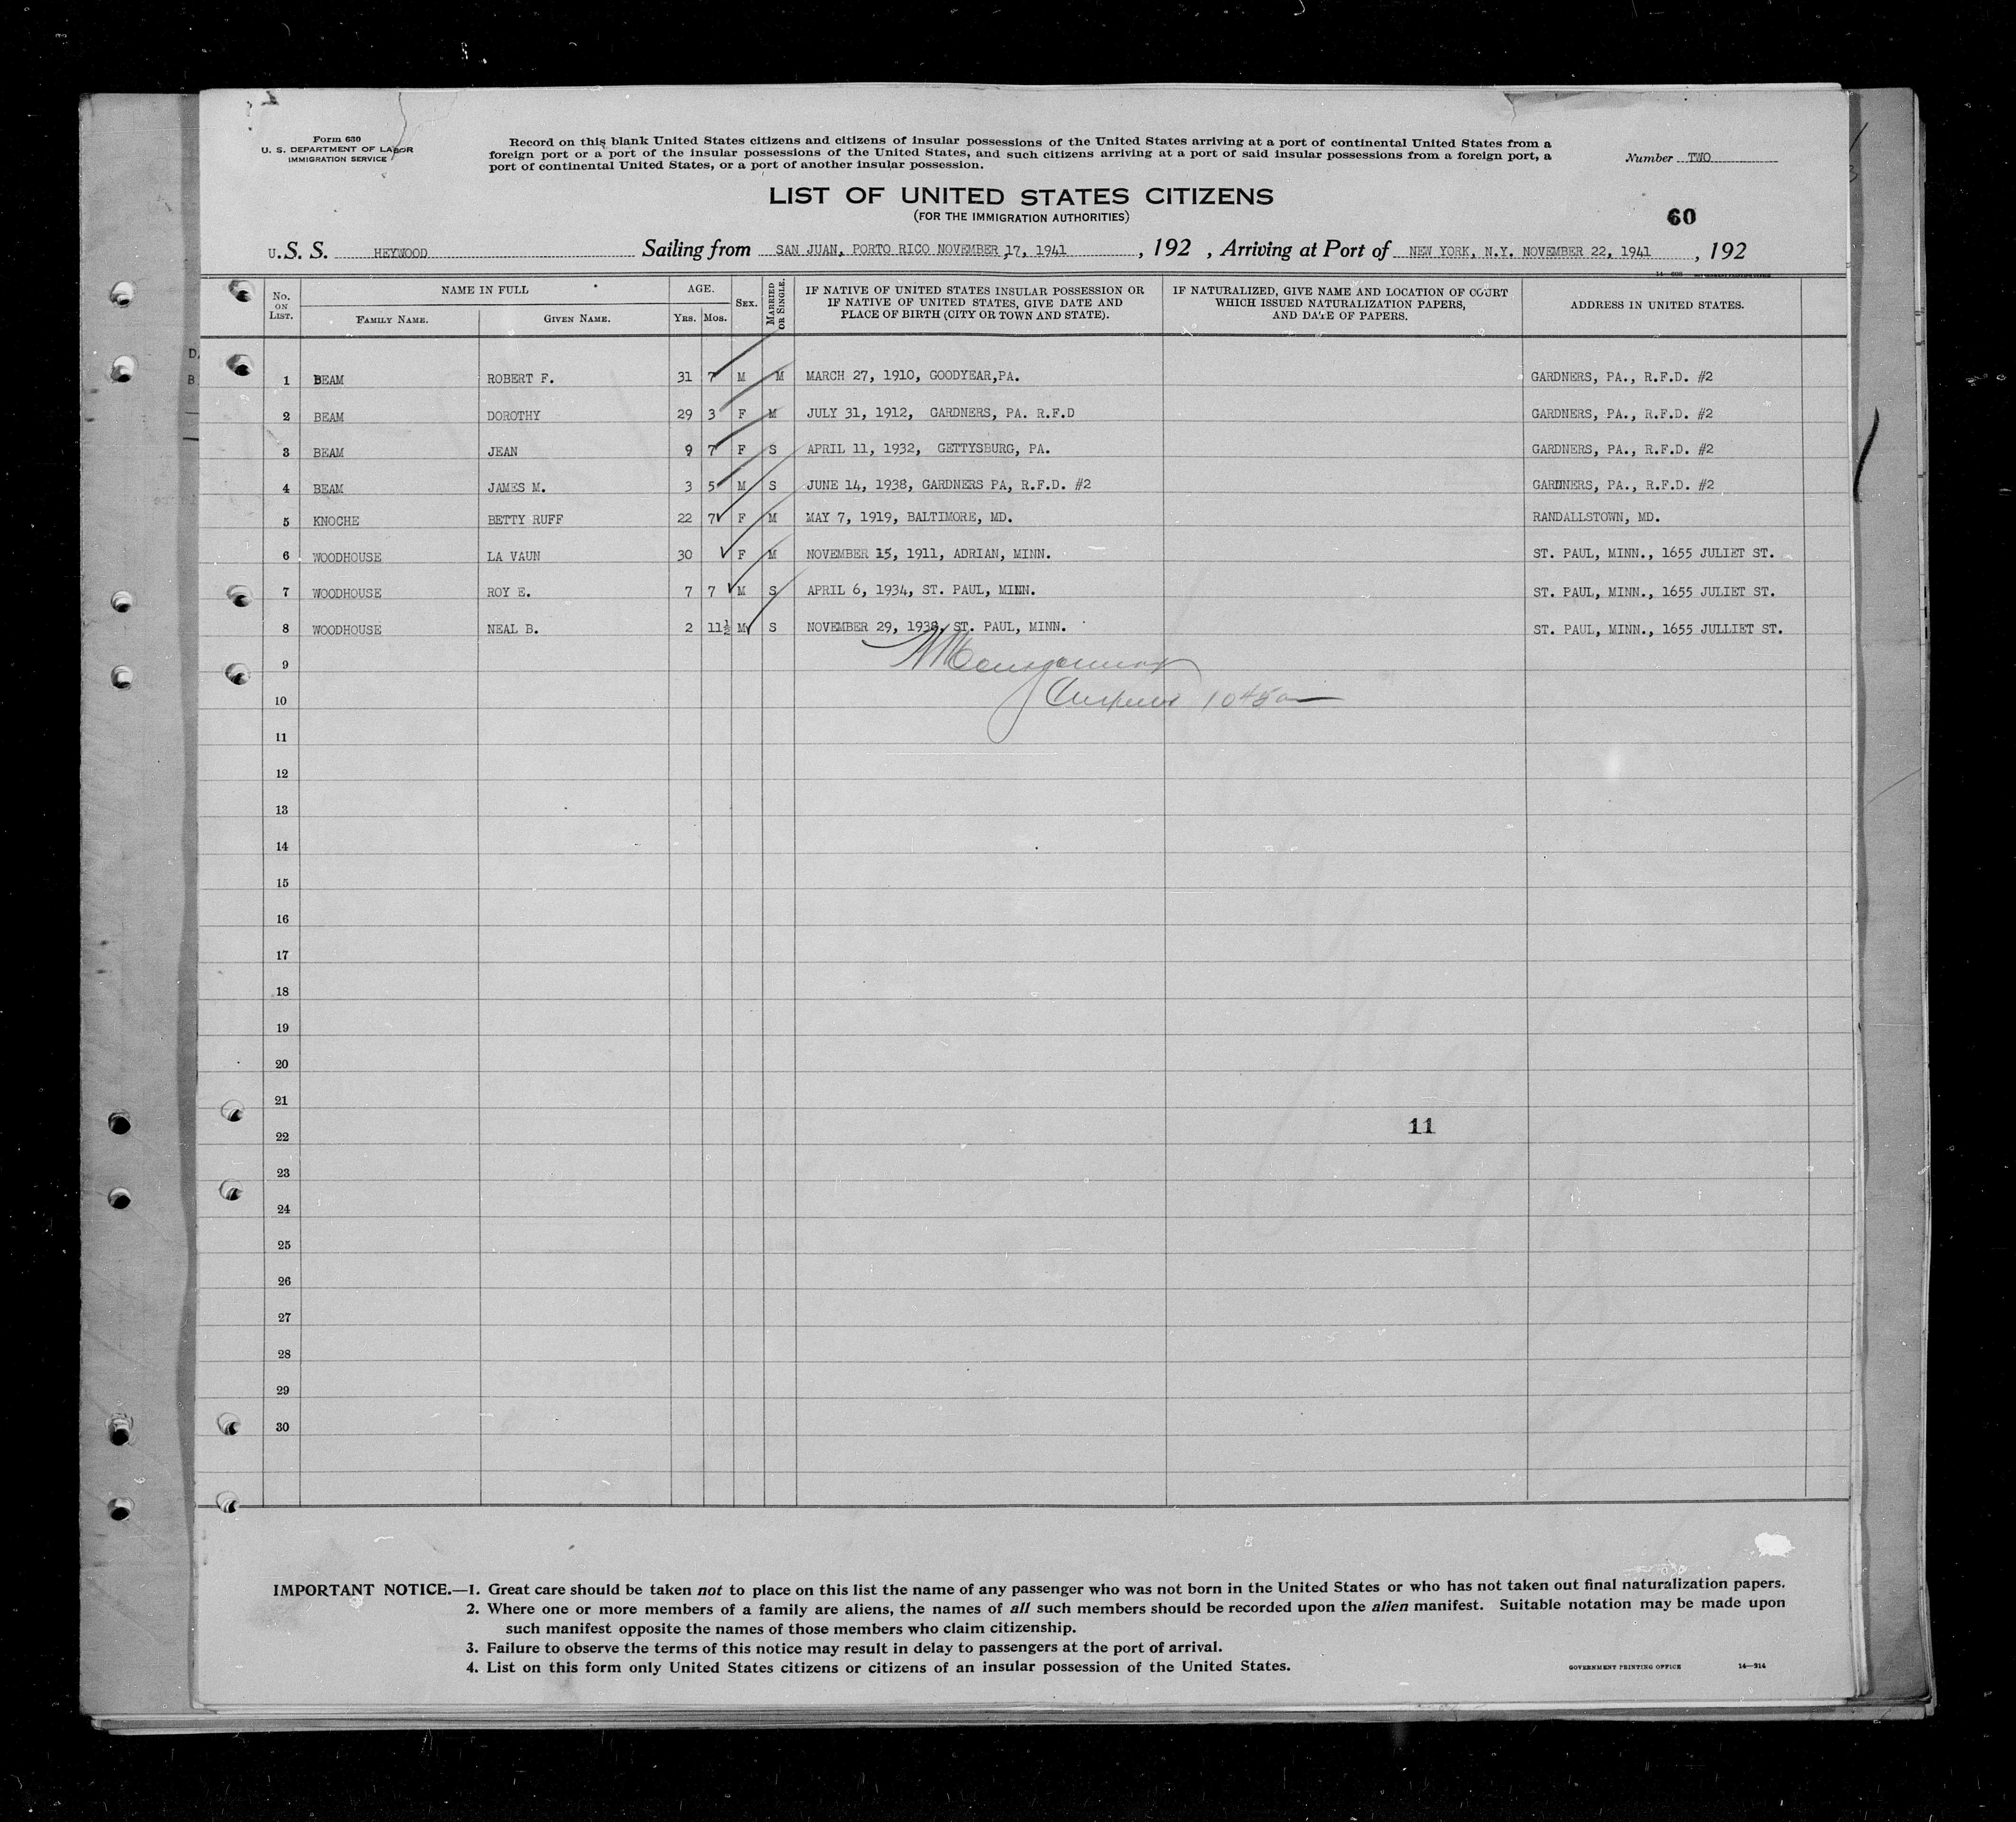 Form 630
U. S. DEPARTMENT OF LABOR
IMMIGRATION SERVICE
Record on this blank United States citizens and citizens of insular possessions of the United States arriving at a port of continental United States from a
foreign port or a port of the insular possessions of the United States, and such citizens arriving at a port of said insular possessions from a foreign port, a
port of continental United States, or a port of another insular possession.
Number TWO
LIST OF UNITED STATES CITIZENS
(FOR THE IMMIGRATION AUTHORITIES)
60
U.S. S. HEYWOOD Sailing from SAN JUAN, PORTO RICO NOVEMBER 17, 1941, 192 , Arriving at Port of NEW YORK, N.Y. NOVEMBER 22, 1941, 192
No. ON LIST. NAME IN FULL FAMILY NAME. GIVEN NAME. AGE. YRS. MOS. SEX. MARRIED OR SINGLE. IF NATIVE OF UNITED STATES INSULAR POSSESSION OR IF NATIVE OF UNITED STATES, GIVE DATE AND PLACE OF BIRTH (CITY OR TOWN AND STATE). IF NATURALIZED, GIVE NAME AND LOCATION OF COURT WHICH ISSUED NATURALIZATION PAPERS, AND DATE OF PAPERS. ADDRESS IN UNITED STATES.
1 BEAM ROBERT F. 31 7 M M MARCH 27, 1910, GOODYEAR,PA. GARDNERS, PA., R.F.D. #2
2 BEAM DOROTHY 29 3 F M JULY 31, 1912, GARDNERS, PA. R.F.D GARDNERS, PA., R.F.D. #2
3 BEAM JEAN 9 7 F S APRIL 11, 1932, GETTYSBURG, PA. GARDNERS, PA., R.F.D. #2
4 BEAM JAMES M. 3 5 M S JUNE 14, 1938, GARDNERS PA, R.F.D. #2 GARDNERS, PA., R.F.D. #2
5 KNOCHE BETTY RUFF 22 7 F M MAY 7, 1919, BALTIMORE, MD. RANDALLSTOWN, MD.
6 WOODHOUSE LA VAUN 30 F M NOVEMBER 15, 1911, ADRIAN, MINN. ST. PAUL, MINN., 1655 JULIET ST.
7 WOODHOUSE ROY E. 7 7 M S APRIL 6, 1934, ST. PAUL, MINN. ST. PAUL, MINN., 1655 JULIET ST.
8 WOODHOUSE NEAL B. 2 11½ M S NOVEMBER 29, 1938, ST. PAUL, MINN. ST. PAUL, MINN., 1655 JULLIET ST.
9
10
11
12
13
14
15
16
17
18
19
20
21
22 11
23
24
25
26
27
28
29
30
IMPORTANT NOTICE.—1. Great care should be taken not to place on this list the name of any passenger who was not born in the United States or who has not taken out final naturalization papers.
2. Where one or more members of a family are aliens, the names of all such members should be recorded upon the alien manifest. Suitable notation may be made upon
such manifest opposite the names of those members who claim citizenship.
3. Failure to observe the terms of this notice may result in delay to passengers at the port of arrival.
4. List on this form only United States citizens or citizens of an insular possession of the United States.
GOVERNMENT PRINTING OFFICE 14—314